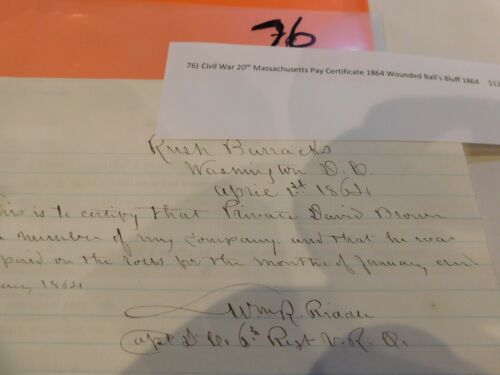 76
76) Civil War 20th Massachusetts Pay Certificate 1864 Wounded Ball's Bluff 1864 $12
Rush Barracks
Washington D.C.
April 1st 1864
This is to certify that Private David Brown
a member of my Company and that he was
paid on the rolls for the months of January and
1864
Wm R.
Capt D Co. 6th Regt V.R.C.